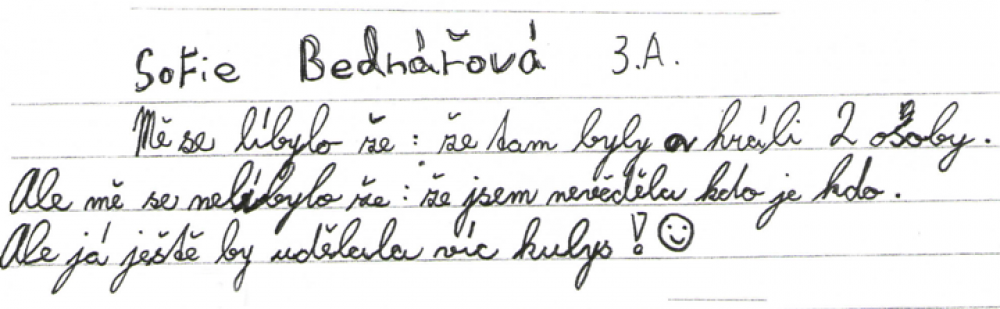 Sofie Bednářová 3.A.
Mě se líbylo že : že tam byly a hráli 2 osoby.
Ale mě se nelíbylo že : že jsem nevěděla kdo je kdo.
Ale já ještě by udělala víc kulys !☺